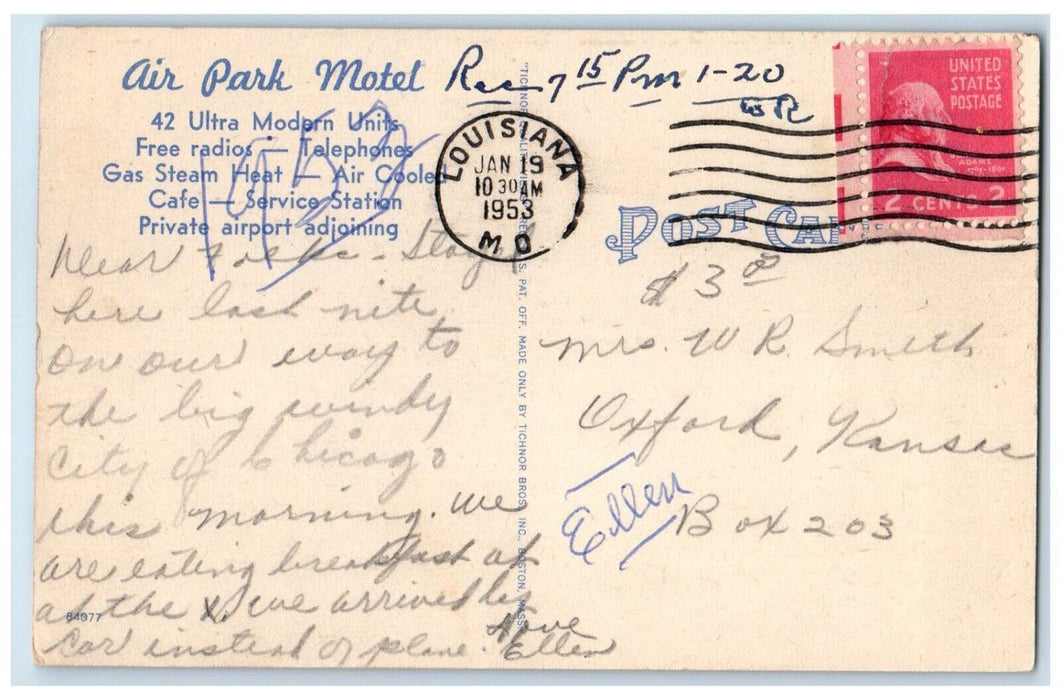 Air Park Motel
42 Ultra Modern Units
Free radios — Telephones
Gas Steam Heat — Air Cooled
Cafe — Service Station
Private airport adjoining
1953
Rec 7 15 Pm 1-20
LOUISIANA
JAN 19
10 30 AM
1953
MO.
UNITED
STATES
POSTAGE
ADAMS
2 CENTS 2
POST CA
Dear Folks - Stayed
here last nite
on our way to
the big windy
City of Chicago
this morning. We
are eating breakfast at
at the X. we arrived by
car instead of plane. Love
Ellen
84977
REG. U.S. PAT. OFF. MADE ONLY BY TICHNOR BROS. INC., BOSTON, MASS.
$3 00
Mrs. W R. Smith
Oxford, Kansas
Box 203
Ellen